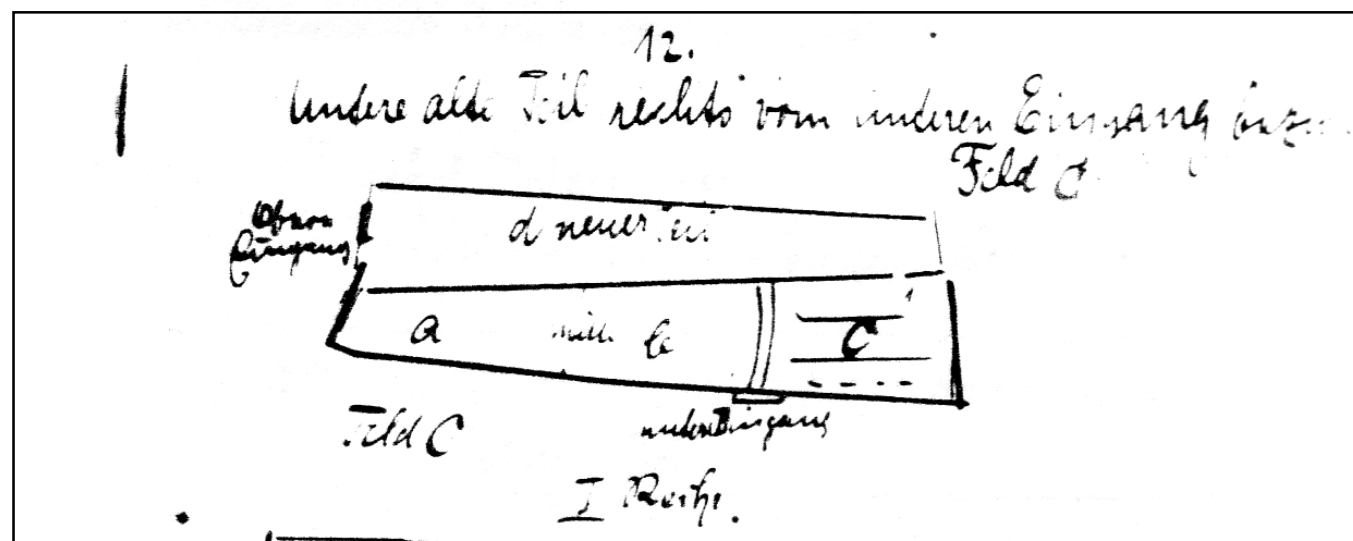 12.
Undere alte Teil rechts vom underen Eingang
Feld C.
Oberer
Eingang
d neuer Teil
a b C
Feld C
unterer Eingang
I Reihe.